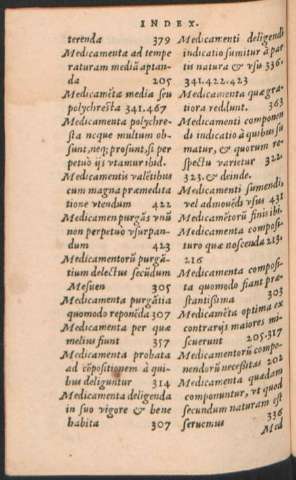 INDEX.
terenda 379
Medicamenta ad tempe
raturam mediã aptan-
da 205
Medicamẽta media seu
polychresta 341.467
Medicamenta polychre-
sta neque multum ob-
sunt, neq; prosunt, si per
petuò ijs vtamur ibid.
Medicamentis valẽtibus
cum magna præmedita
tione vtendum 422
Medicamen purgãs vnũ
non perpetuo vsurpan-
dum 423
Medicamentorũ purgã-
tium delectus secũdum
Mesuen 305
Medicamenta purgãtia
quomodo reponẽda 307
Medicamenta per quæ
melius fiunt 357
Medicamenta probata
ad cõpositionem à qui-
bus deliguntur 314
Medicamenta deligenda
in suo vigore & bene
habita 307
Medicamenti deligendi
indicatio sumitur à par
tis natura & vsu 336.
341.422.423
Medicamenta quæ gra-
tiora reddunt. 363
Medicamenti componen
di indicatio à quibus su
matur, & quorum re-
spectu varietur 322.
323. & deinde.
Medicamenti sumendi,
vel admouẽdi vsus 431
Medicamẽtorũ finis ibi.
Medicamenta composi-
turo quæ noscenda 213.
216
Medicamenta composi-
ta quomodo fiant præ-
stantissima 303
Medicamẽta optima ex
contrarijs maiores mi-
scuerunt 205.317
Medicamentorũ compo-
nendorũ necessitas 202
Medicamenta quædam
componuntur, vt quod
secundum naturam est
seruemus 336
Med